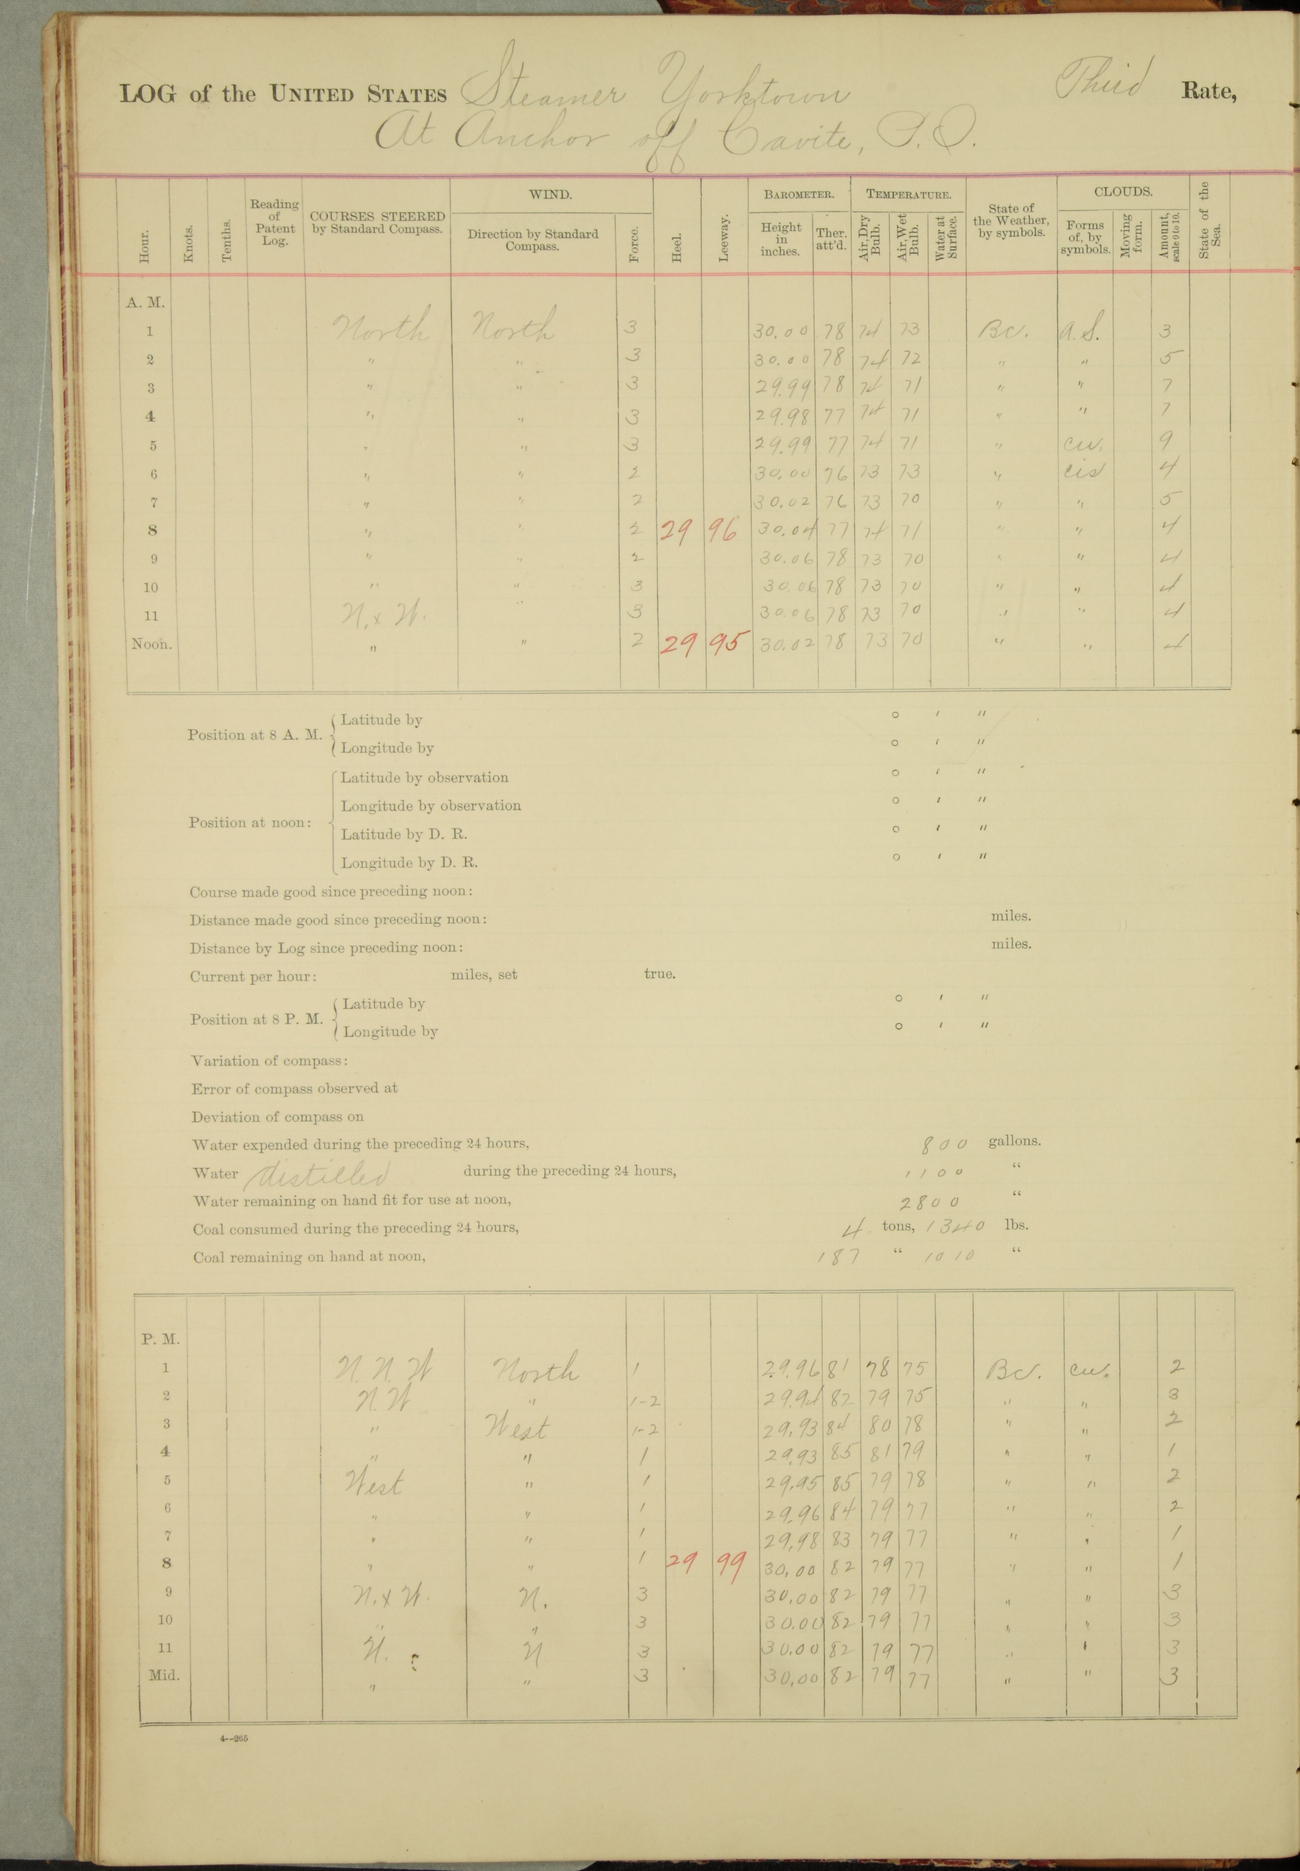 LOG of the UNITED STATES Steamer Yorktown Third Rate,
At Anchor off Cavite, P.I.
Hour. Knots. Tenths. Reading of Patent Log. COURSES STEERED by Standard Compass. WIND. Direction by Standard Compass. Force. Heel. Leeway. BAROMETER. Height in inches. Ther. att'd. TEMPERATURE. Air, Dry Bulb. Air, Wet Bulb. Water at Surface. State of the Weather, by symbols. CLOUDS. Forms of, by symbols. Moving form. Amount, scale 0 to 10. State of the Sea.
A. M.
1 North North 3 30.00 78 74 73 Bc. a.S. 3
2 " " 3 30.00 78 74 72 " " 5
3 " " 3 29.99 78 74 71 " " 7
4 " " 3 29.98 77 74 71 " " 7
5 " " 3 29.99 77 74 71 " cu. 9
6 " " 2 30.00 76 73 73 " 4
7 " " 2 30.02 76 73 70 " " 5
8 " " 2 29 96 30.04 77 74 71 " " 4
9 " " 2 30.06 78 73 70 " " 4
10 " " 3 30.06 78 73 70 " " 4
11 N. x W. " 3 30.06 78 73 70 " " 4
Noon. " " 2 29 95 30.02 78 73 70 " " 4
Position at 8 A. M. Latitude by ° ' "
Longitude by ° ' "
Position at noon: Latitude by observation ° ' "
Longitude by observation ° ' "
Latitude by D. R. ° ' "
Longitude by D. R. ° ' "
Course made good since preceding noon:
Distance made good since preceding noon: miles.
Distance by Log since preceding noon: miles.
Current per hour: miles, set true.
Position at 8 P. M. Latitude by ° ' "
Longitude by ° ' "
Variation of compass:
Error of compass observed at
Deviation of compass on
Water expended during the preceding 24 hours, 800 gallons.
Water distilled during the preceding 24 hours, 1100 "
Water remaining on hand fit for use at noon, 2800 "
Coal consumed during the preceding 24 hours, 4 tons, 1340 lbs.
Coal remaining on hand at noon, 187 " 1010 "
P. M.
1 N. N. W North 1 29.96 81 78 75 Bc. cu. 2
2 N. W " 1-2 29.94 82 79 75 " " 3
3 " West 1-2 29.93 84 80 78 " " 2
4 " " 1 29.93 85 81 79 " " 1
5 West " 1 29.95 85 79 78 " " 2
6 " " 1 29.96 84 79 77 " " 2
7 " " 1 29.98 83 79 77 " " 1
8 " " 1 29 99 30.00 82 79 77 " " 1
9 N. x W. N. 3 30.00 82 79 77 " " 3
10 " " 3 30.00 82 79 77 " " 3
11 N. N 3 30.00 82 79 77 " " 3
Mid. " " 3 30.00 82 79 77 " " 3
4--265